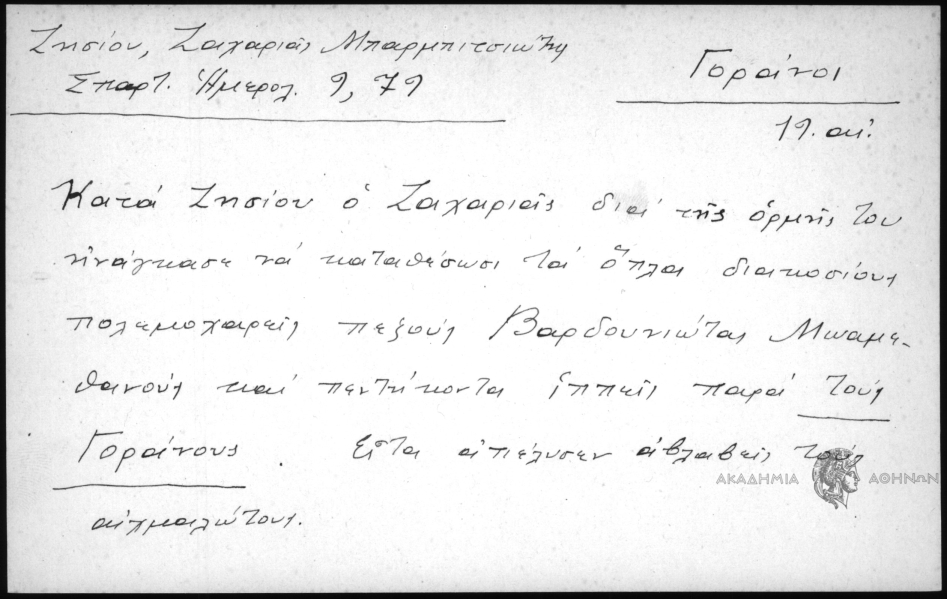 Ζησίου, Ζαχαριᾶς Μπαρμπιτσιώτης
Σπαρτ. Ἡμερολ. 9, 79
Γοράνοι
19. αἰ.
Κατά Ζησίου ὁ Ζαχαριᾶς διά τῆς ὁρμῆς του
ἠνάγκασε νά καταθέσωσι τά ὅπλα διακοσίους
πολεμοχαρεῖς πεζούς Βαρδουνιώτας Μωαμε-
θανούς καί πεντήκοντα ἱππεῖς παρά τούς
Γοράνους. Εἶτα ἀπέλυσεν ἀβλαβεῖς τούς
αἰχμαλώτους.
ΑΚΑΔΗΜΙΑ ΑΘΗΝΩΝ